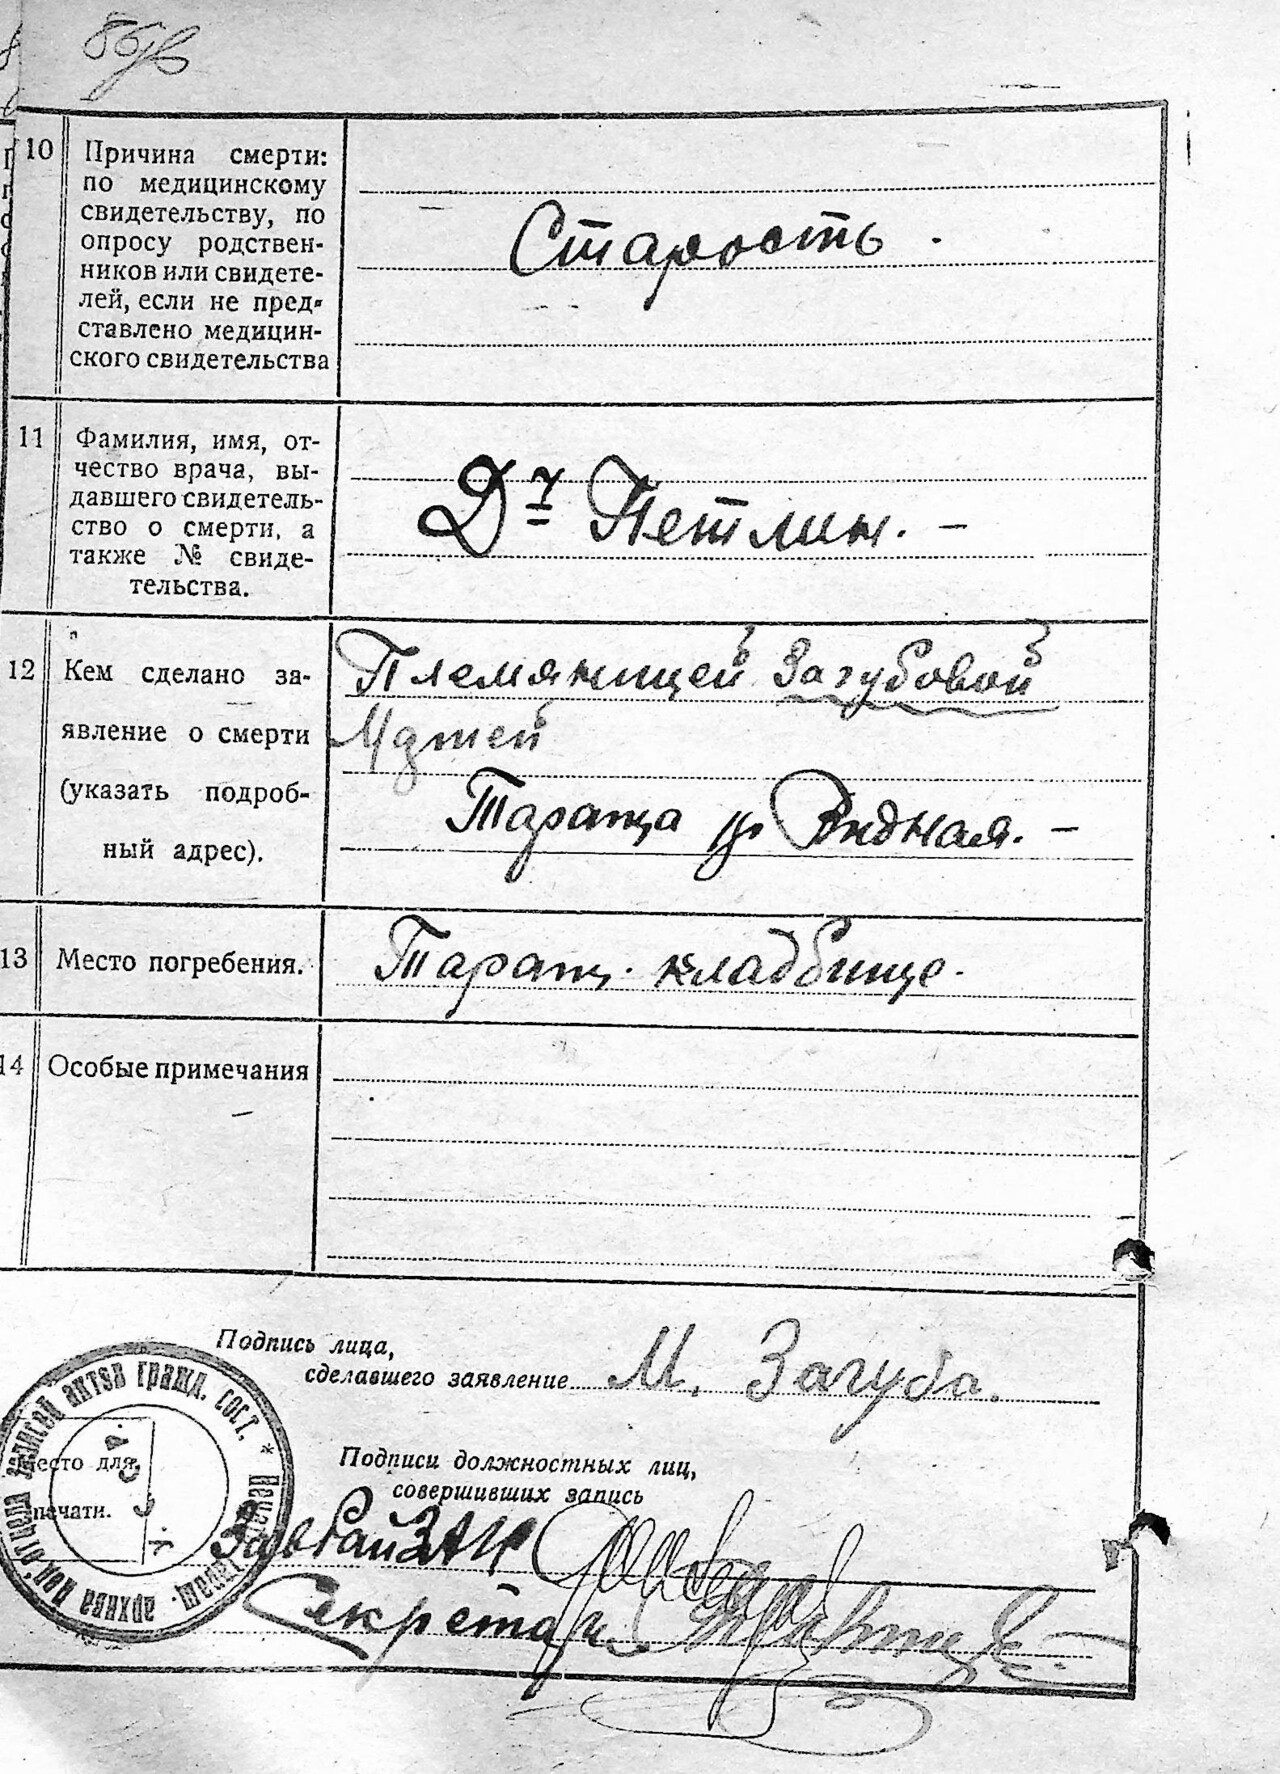 10
Причина смерти:
по медицинскому
свидетельству, по
опросу родствен-
ников или свидете-
лей, если не пред-
ставлено медицин-
ского свидетельства
Старость.
11
Фамилия, имя, от-
чество врача, вы-
давшего свидетель-
ство о смерти, а
также № свиде-
тельства.
Петлин. –
12
Кем сделано за-
явление о смерти
(указать подроб-
ный адрес).
Племянницей Загубовой
Тараща
13
Место погребения.
Таращ. кладбище.
14
Особые примечания
Подпись лица,
сделавшего заявление
М. Загуба.
Место для
печати.
записей актов гражд. сост. *
Подписи должностных лиц,
совершивших запись
Секретарь